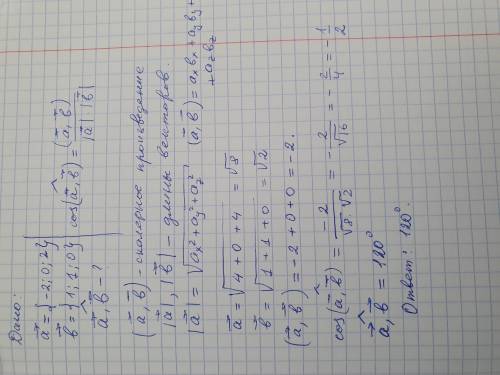 Дано:
a⃗ = {-2; 0; 2}
b⃗ = {1; 1; 0}
a⃗,^b⃗ - ?
cos(a⃗,^b⃗) = (a⃗, b⃗) / |a⃗| |b⃗|
(a⃗, b⃗) - скалярное произведение
|a⃗|, |b⃗| - длины векторов.
|a⃗| = √(aₓ² + a_y² + a_z²) (a⃗, b⃗) = aₓbₓ + a_yb_y +
+ a_zb_z
a⃗ = √(4 + 0 + 4) = √8
b⃗ = √(1 + 1 + 0) = √2
(a⃗, b⃗) = -2 + 0 + 0 = -2.
cos(a⃗,^b⃗) = -2/(√8 √2) = -2/√16 = -2/4 = -1/2
a⃗,^b⃗ = 120°
Ответ: 120°.